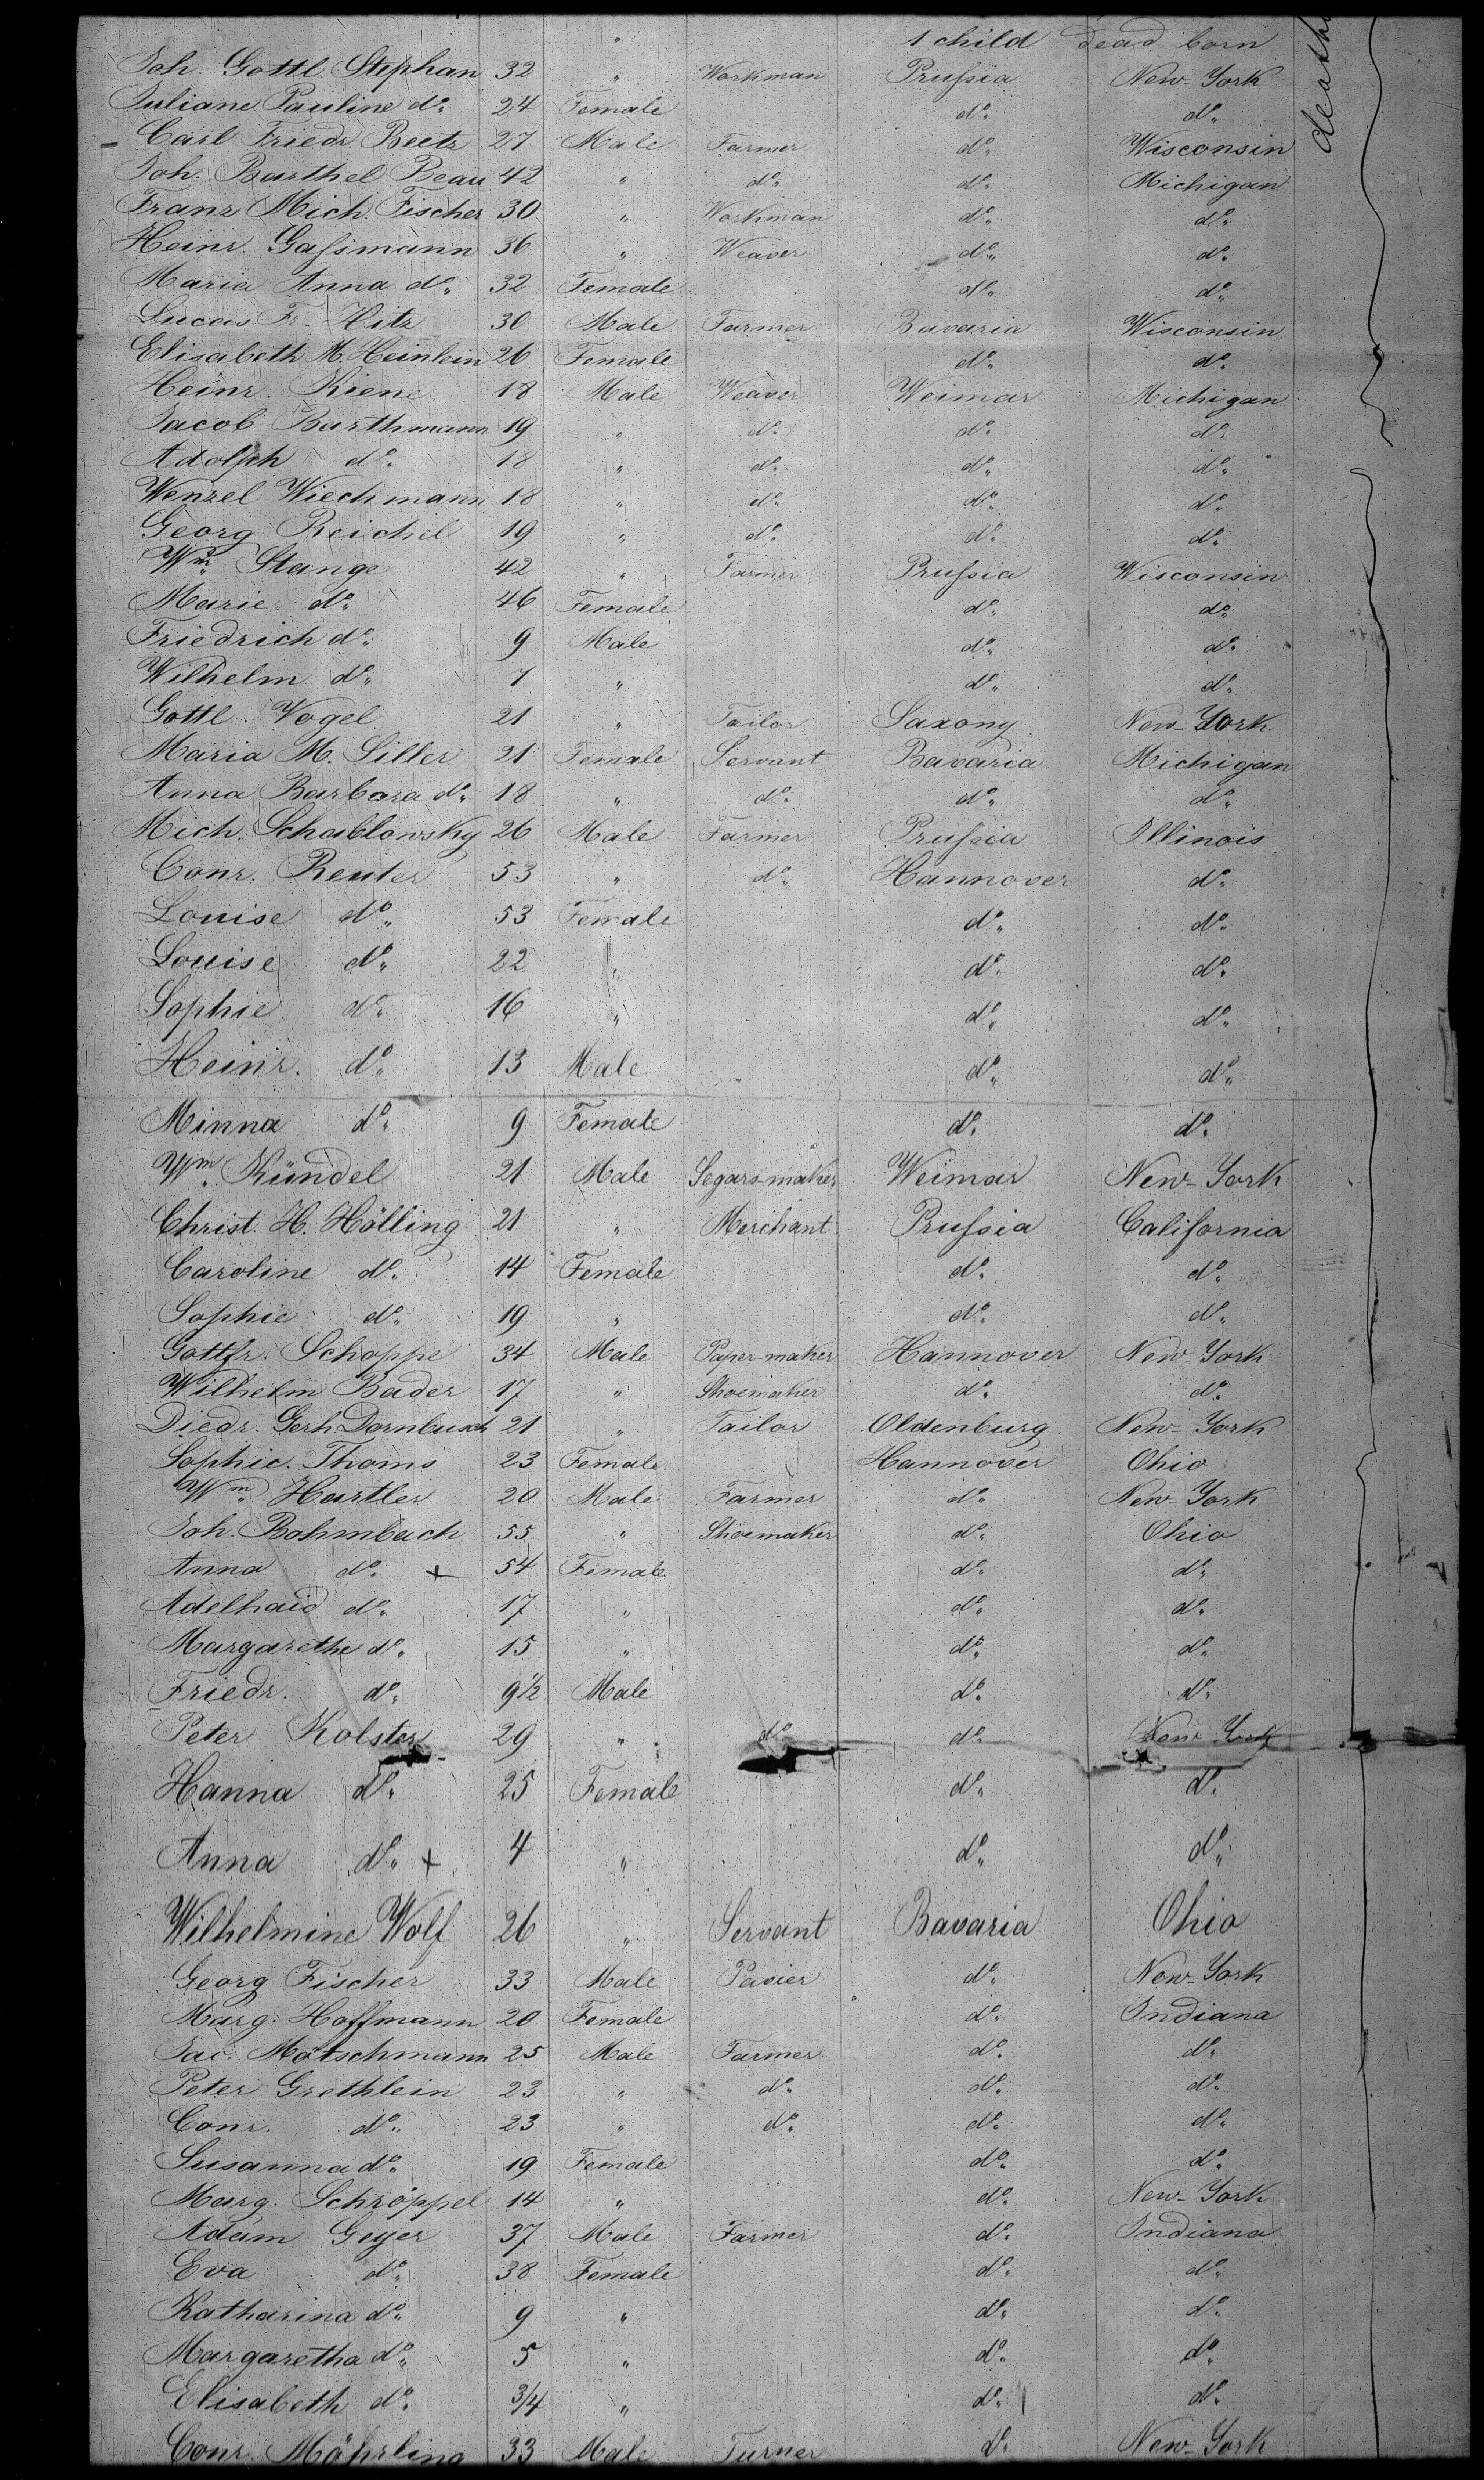 " 1 child dead born
death
Joh. Gottl. Stephan 32 " Workman Prussia New-York
Juliane Pauline do. 24 Female do. do.
Carl Friedr. Beetz 27 Male Farmer do. Wisconsin
Joh. Barthel Beau 42 " do. do. Michigan
Franz Mich. Fischer 30 " Workman do. do.
Heinr. Gassmann 36 " Weaver do. do.
Maria Anna do. 32 Female do. do.
Lucas Fr. Hitz 30 Male Farmer Bavaria Wisconsin
Elisabeth M. Heinlein 26 Female do. do.
Heinr. Kiene 18 Male Weaver Weimar Michigan
Jacob Barthmann 19 " do. do. do.
Adolph do. 18 " do. do. do.
Wenzel Wiechmann 18 " do. do. do.
Georg Reichel 19 " do. do. do.
Wm. Stange 42 " Farmer Prussia Wisconsin
Marie do. 46 Female do. do.
Friedrich do. 9 Male do. do.
Wilhelm do. 7 " do. do.
Gottl. Vogel 21 " Tailor Saxony New-York
Maria M. Siller 21 Female Servant Bavaria Michigan
Anna Barbara do. 18 " do. do. do.
Mich. Schablowsky 26 Male Farmer Prussia Illinois
Conr. Reuter 53 " do. Hannover do.
Louise do. 53 Female do. do.
Louise do. 22 " do. do.
Sophie do. 16 " do. do.
Heinr. do. 13 Male do. do.
Minna do. 9 Female do. do.
Wm. Kündel 21 Male Segars-maker Weimar New-York
Christ. H. Hölling 21 " Merchant Prussia California
Caroline do. 14 Female do. do.
Sophie do. 19 " do. do.
Gottfr. Schoppe 34 Male Paper-maker Hannover New-York
Wilhelm Bader 17 " Shoemaker do. do.
Diedr. Gerh. Dornbusch 21 " Tailor Oldenburg New-York
Sophie Thoms 23 Female Hannover Ohio
Wm. Hartler 20 Male Farmer do. New-York
Joh. Bohmbach 55 " Shoemaker do. Ohio
Anna do. + 54 Female do. do.
Adelhaid do. 17 " do. do.
Margarethe do. 15 " do. do.
Friedr. do. 9 1/2 Male do. do.
Peter Kolster 29 " do. do. New York
Hanna do. 25 Female do. do.
Anna do. + 4 " do. do.
Wilhelmine Wolf 26 " Servant Bavaria Ohio
Georg Fischer 33 Male Pavier do. New-York
Marg. Hoffmann 20 Female do. Indiana
Jac. Motschmann 25 Male Farmer do. do.
Peter Grethlein 23 " do. do. do.
Conr. do. 23 " do. do. do.
Susanna do. 19 Female do. do.
Marg. Schröppel 14 " do. New-York
Adam Geyer 37 Male Farmer do. Indiana
Eva do. 38 Female do. do.
Katharina do. 9 " do. do.
Margaretha do. 5 " do. do.
Elisabeth do. 3/4 " do. do.
Conr. Möhrling 33 Male Turner do. New-York